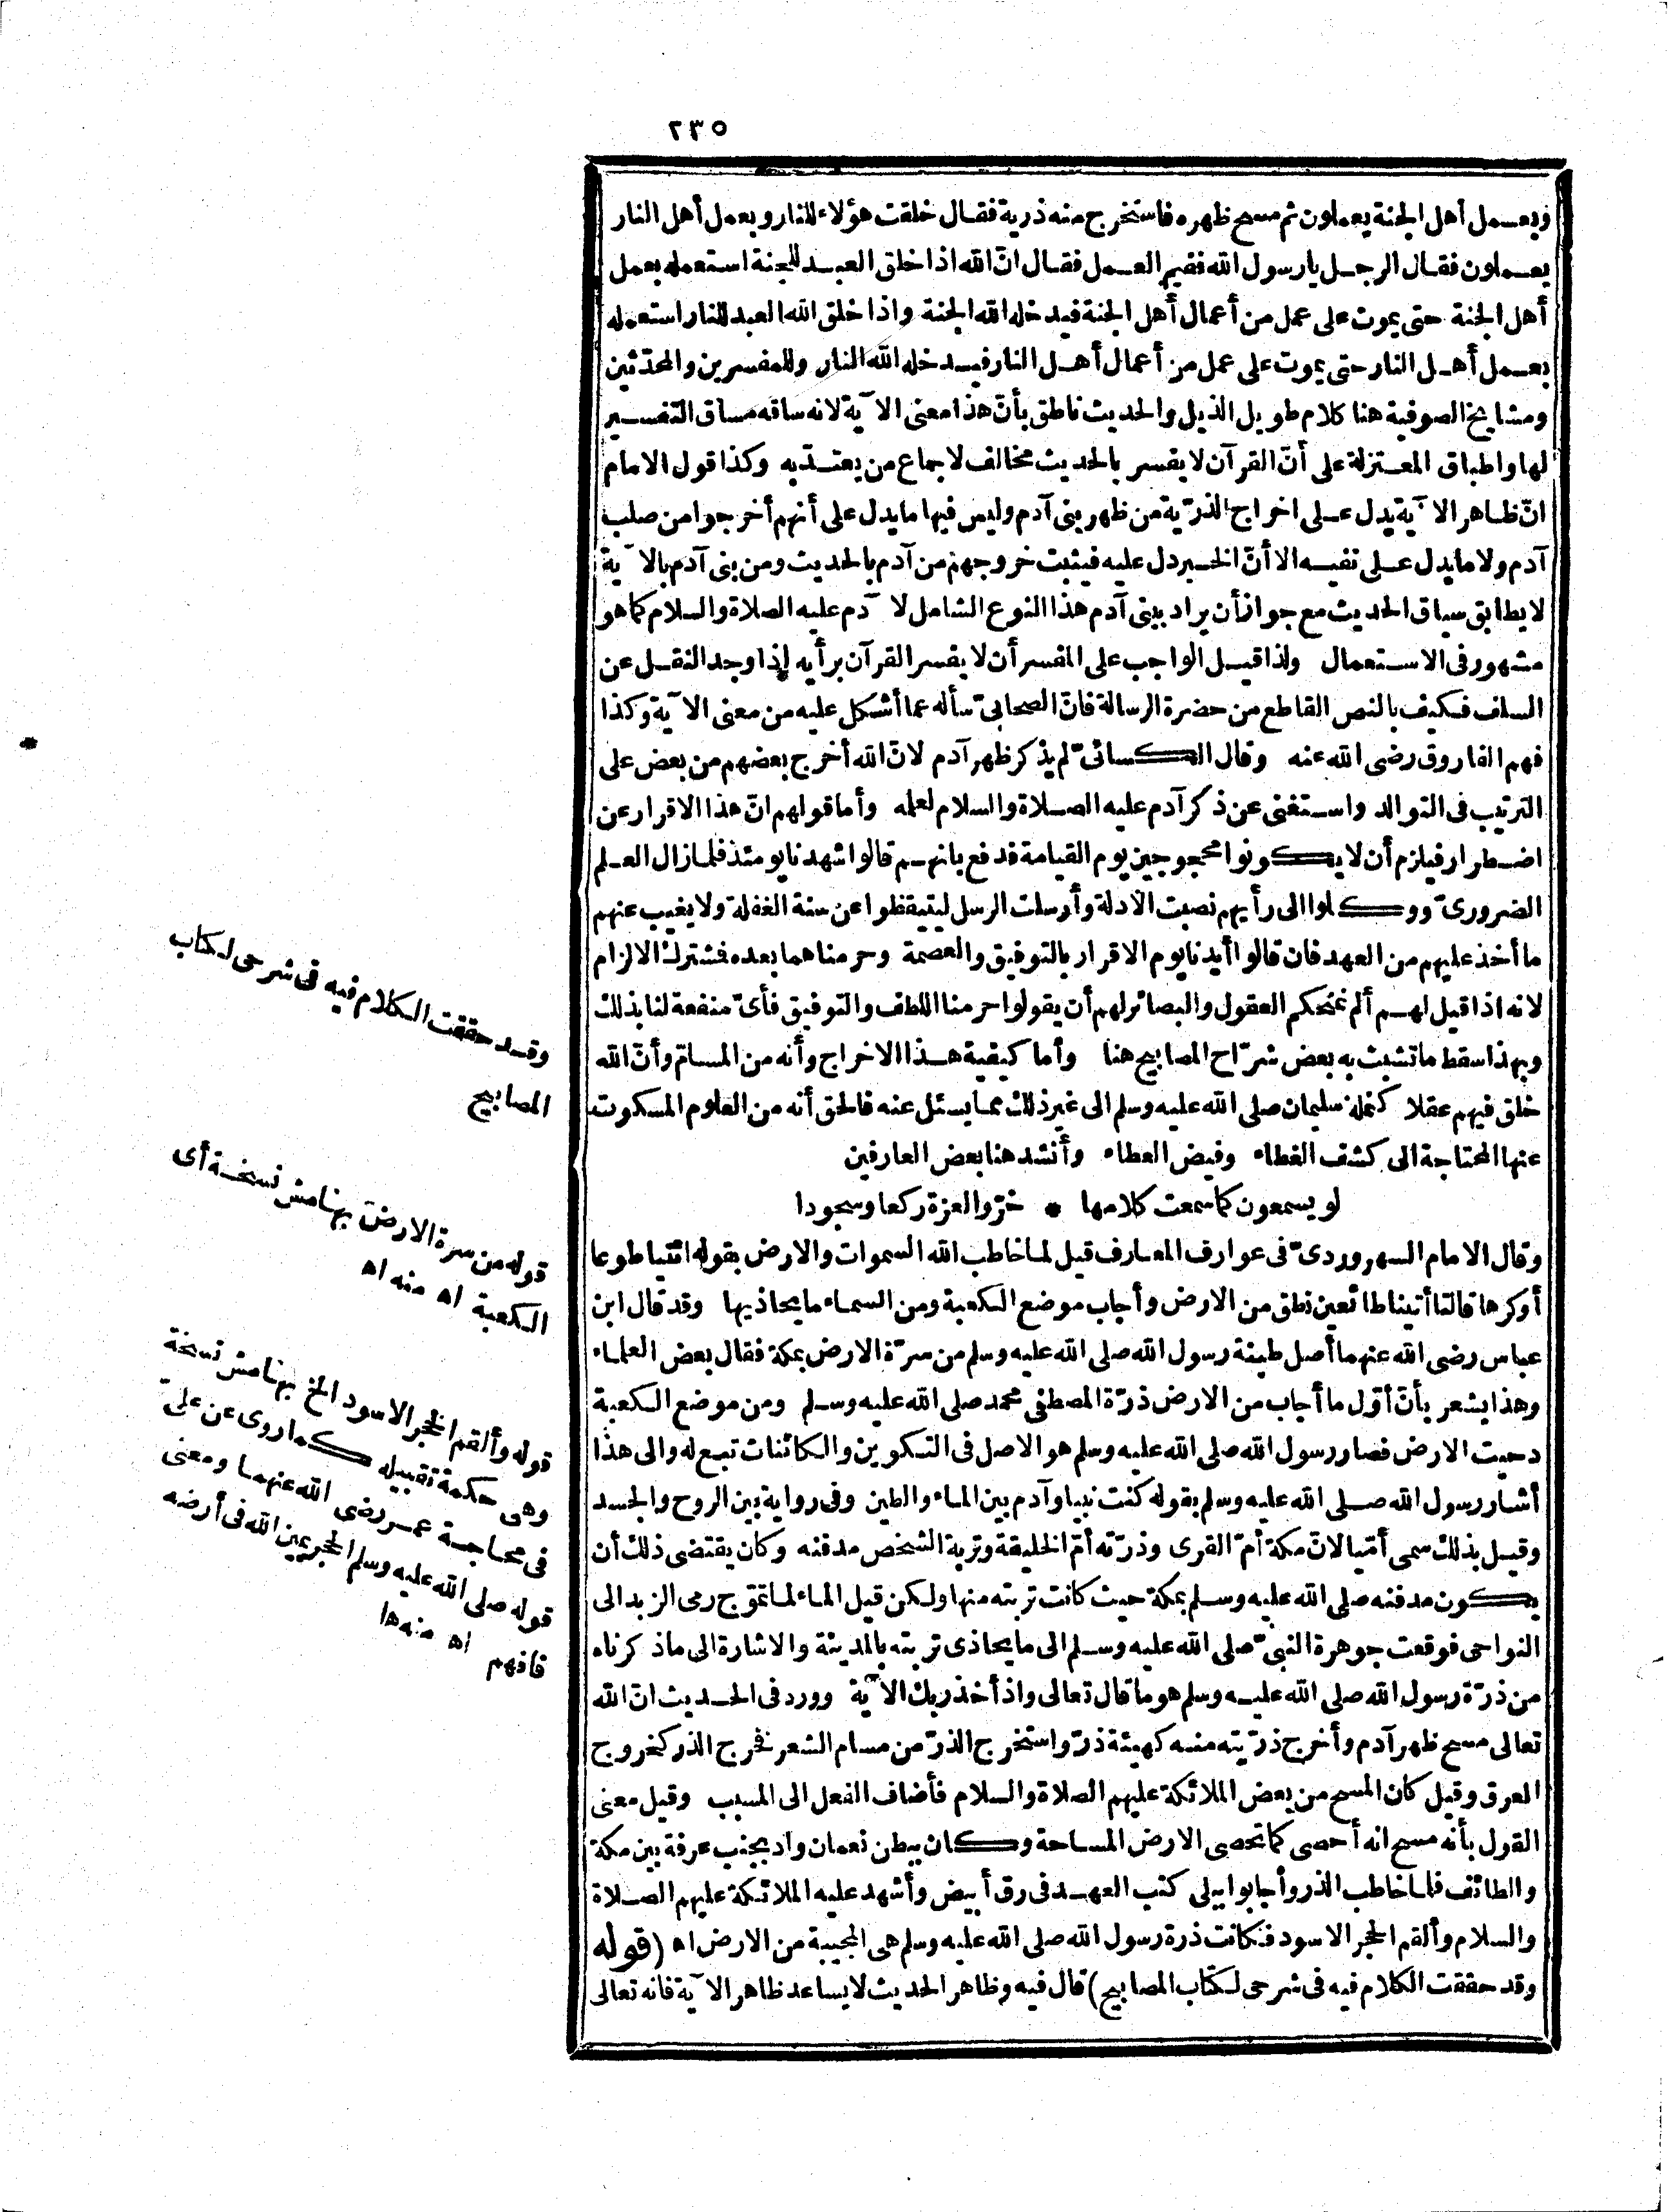 ٢٣٥
وبعمل أهل الجنة يعملون ثم مسح ظهره فاستخرج منه ذرية فقال خلقت هؤلاء للنار وبعمل أهل النار
يعملون فقال الرجل يا رسول الله ففيم العمل فقال انّ الله اذا خلق العبد للجنة استعمله بعمل
أهل الجنة حتى يموت على عمل من أعمال أهل الجنة فيدخله الله الجنة واذا خلق الله العبد للنار استعمله
بعمل أهل النار حتى يموت على عمل من أعمال أهل النار فيدخله الله النار وللمفسرين والمحدّثين
ومشايخ الصوفية هنا كلام طويل الذيل والحديث ناطق بأنّ هذا معنى الآية لانه ساقه مساق التفسير
لها واطباق المعتزلة على أنّ القرآن لا يفسر بالحديث مخالف لاجماع من يعتدّ به وكذا قول الامام
انّ ظاهر الآية يدل على اخراج الذرّية من ظهر بنى آدم وليس فيها ما يدل على أنهم أخرجوا من صلب
آدم ولا ما يدل على نفيه الا أنّ الخبر دل عليه فيثبت خروجهم من آدم بالحديث ومن بنى آدم بالآية
لا يطابق سياق الحديث مع جواز أن يراد ببنى آدم هذا النوع الشامل لآدم عليه الصلاة والسلام كما هو
مشهور فى الاستعمال ولذا قيل الواجب على المفسر أن لا يفسر القرآن برأيه إذا وجد النقل عن
السلف فكيف بالنص القاطع من حضرة الرسالة فانّ الصحابىّ سأله عما أشكل عليه من معنى الآية وكذا
فهم الفاروق رضى الله عنه وقال الكسائىّ لم يذكر ظهر آدم لانّ الله أخرج بعضهم من بعض على
الترتيب فى التوالد واستغنى عن ذكر آدم عليه الصلاة والسلام لعلمه وأما قولهم انّ هذا الاقرار عن
اضطرار فيلزم أن لا يكونوا محجوجين يوم القيامة فدفع بانهم قالوا شهدنا يومئذ فلما زال العلم
الضرورىّ ووكلوا الى رأيهم نصبت الادلة وأرسلت الرسل ليتيقظوا عن سنة الغفلة ولا يغيب عنهم
ما أخذ عليهم من العهد فان قالوا أيدنا يوم الاقرار بالتوفيق والعصمة وحرمناهما بعده فشترك الالزام
لانه اذا قيل لهم ألم نمنحكم العقول والبصائر لهم أن يقولوا حرمنا اللطف والتوفيق فأىّ منفعة لنا بذلك
وبهذا سقط ما تشبث به بعض شرّاح المصابيح هنا وأما كيفية هذا الاخراج وأنه من المسامّ وأنّ الله
خلق فيهم عقلا كنملة سليمان صلى الله عليه وسلم الى غير ذلك مما يسئل عنه فالحق أنه من العلوم المسكوت
عنها المحتاجة الى كشف الغطاء وفيض العطاء وأنشد هنا بعض العارفين
لو يسمعون كما سمعت كلامها * خرّوا لعزة ركعا وسجودا
وقال الامام السهروردىّ فى عوارف المعارف قيل لما خاطب الله السموات والارض بقوله ائتيا طوعا
أو كرها قالتا أتينا طائعين نطق من الارض وأجاب موضع الكعبة ومن السماء ما يحاذيها وقد قال ابن
عباس رضى الله عنهما أصل طينة رسول الله صلى الله عليه وسلم من سرّة الارض بمكة فقال بعض العلماء
وهذا يشعر بأنّ أوّل ما أجاب من الارض ذرّة المصطفى محمد صلى الله عليه وسلم ومن موضع الكعبة
دحيت الارض فصار رسول الله صلى الله عليه وسلم هو الاصل فى التكوين والكائنات تبع له والى هذا
أشار رسول الله صلى الله عليه وسلم بقوله كنت نبيا وآدم بين الماء والطين وفى رواية بين الروح والجسد
وقيل بذلك سمى أمّيا لانّ مكة أمّ القرى وذرّته أمّ الخليقة وتربة الشخص مدفنه وكان يقتضى ذلك أن
يكون مدفنه صلى الله عليه وسلم بمكة حيث كانت تربته منها ولكن قيل الماء لما تموّج رمى الزبد الى
النواحى فوقعت جوهرة النبىّ صلى الله عليه وسلم الى ما يحاذى تربته بالمدينة والاشارة الى ما ذكرناه
من ذرّة رسول الله صلى الله عليه وسلم هو ما قال تعالى واذ أخذ ربك الآية وورد فى الحديث انّ الله
تعالى مسح ظهر آدم وأخرج ذرّيته منه كهيئة ذرّ واستخرج الذرّ من مسام الشعر فخرج الذر كخروج
العرق وقيل كان المسح من بعض الملائكة عليهم الصلاة والسلام فأضاف الفعل الى المسبب وقيل معنى
القول بأنه مسح انه أحصى كما تحصى الارض المساحة وكان ببطن نعمان واد بجنب عرفة بين مكة
والطائف فلما خاطب الذر وأجابوا ببلى كتب العهد فى رق أبيض وأشهد عليه الملائكة عليهم الصلاة
والسلام وألقم الحجر الاسود فكانت ذرة رسول الله صلى الله عليه وسلم هى المجيبة من الارض اه (قوله
وقد حققت الكلام فيه فى شرحى لكتاب المصابيح) قال فيه وظاهر الحديث لا يساعد ظاهر الآية فانه تعالى
وقد حققت الكلام فيه فى شرحى لكتاب
المصابيح
قوله من سرة الارض بهامش نسخة أى
الكعبة اه منه اه
قوله وألقم الحجر الاسود الخ بهامش نسخة
وهى حكمة تقبيله كما روى عن علىّ
فى محاجة عمر رضى الله عنهما ومعنى
قوله صلى الله عليه وسلم الحجر يمين الله فى أرضه
فافهم اه منه ها